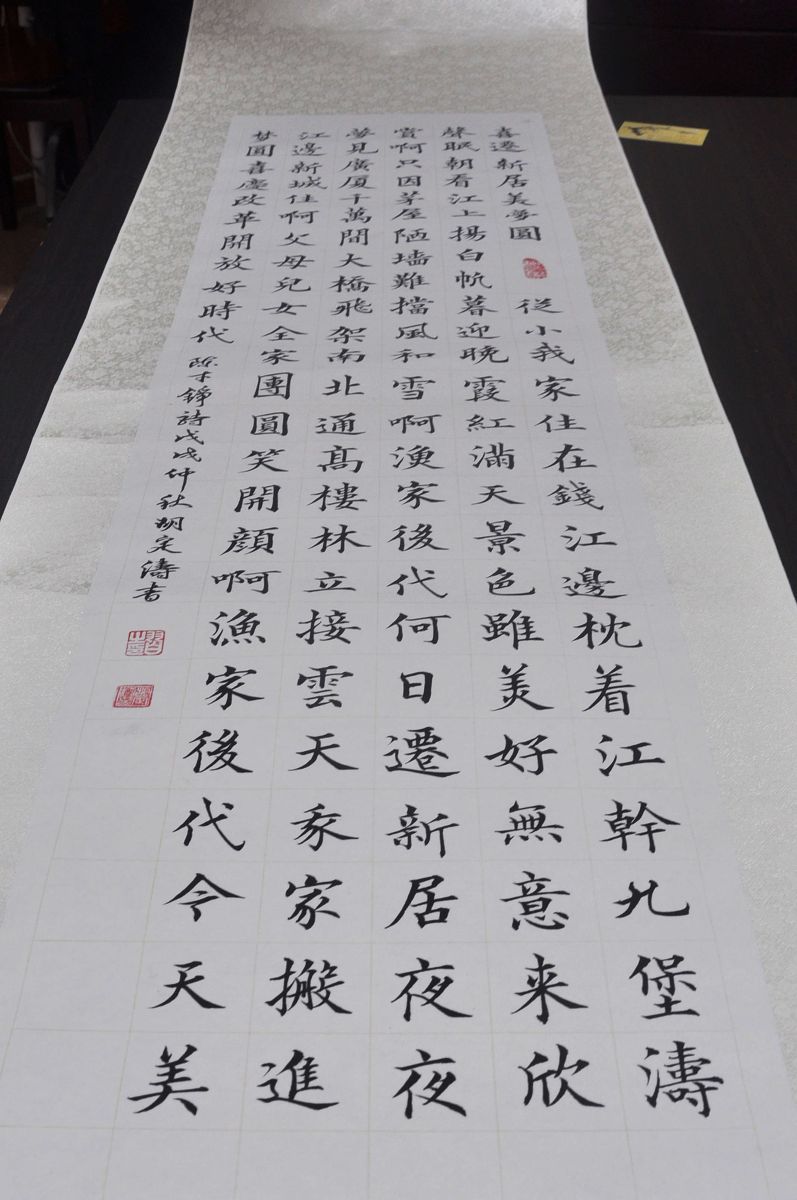 喜遷新居美夢圓 從小我家住在錢江邊枕着江幹九堡濤
聲眠朝看江上揚白帆暮迎晚霞紅滿天景色雖美好無意来欣
賞啊只因茅屋陋墙難擋風和雪啊漁家後代何日遷新居夜夜
夢見廣厦千萬間大橋飛架南北通高樓林立接雲天家搬進
江邊新城住啊父母兒女全家團圓笑開顏啊漁家後代今天美
梦圓喜慶改革開放好時代 陈才錚詩戊戌仲秋胡定濤書